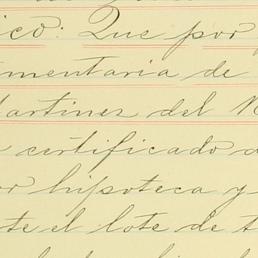 ico: Que por
mentaria de
Martinez del
certificado
hipoteca y
te el lote de t